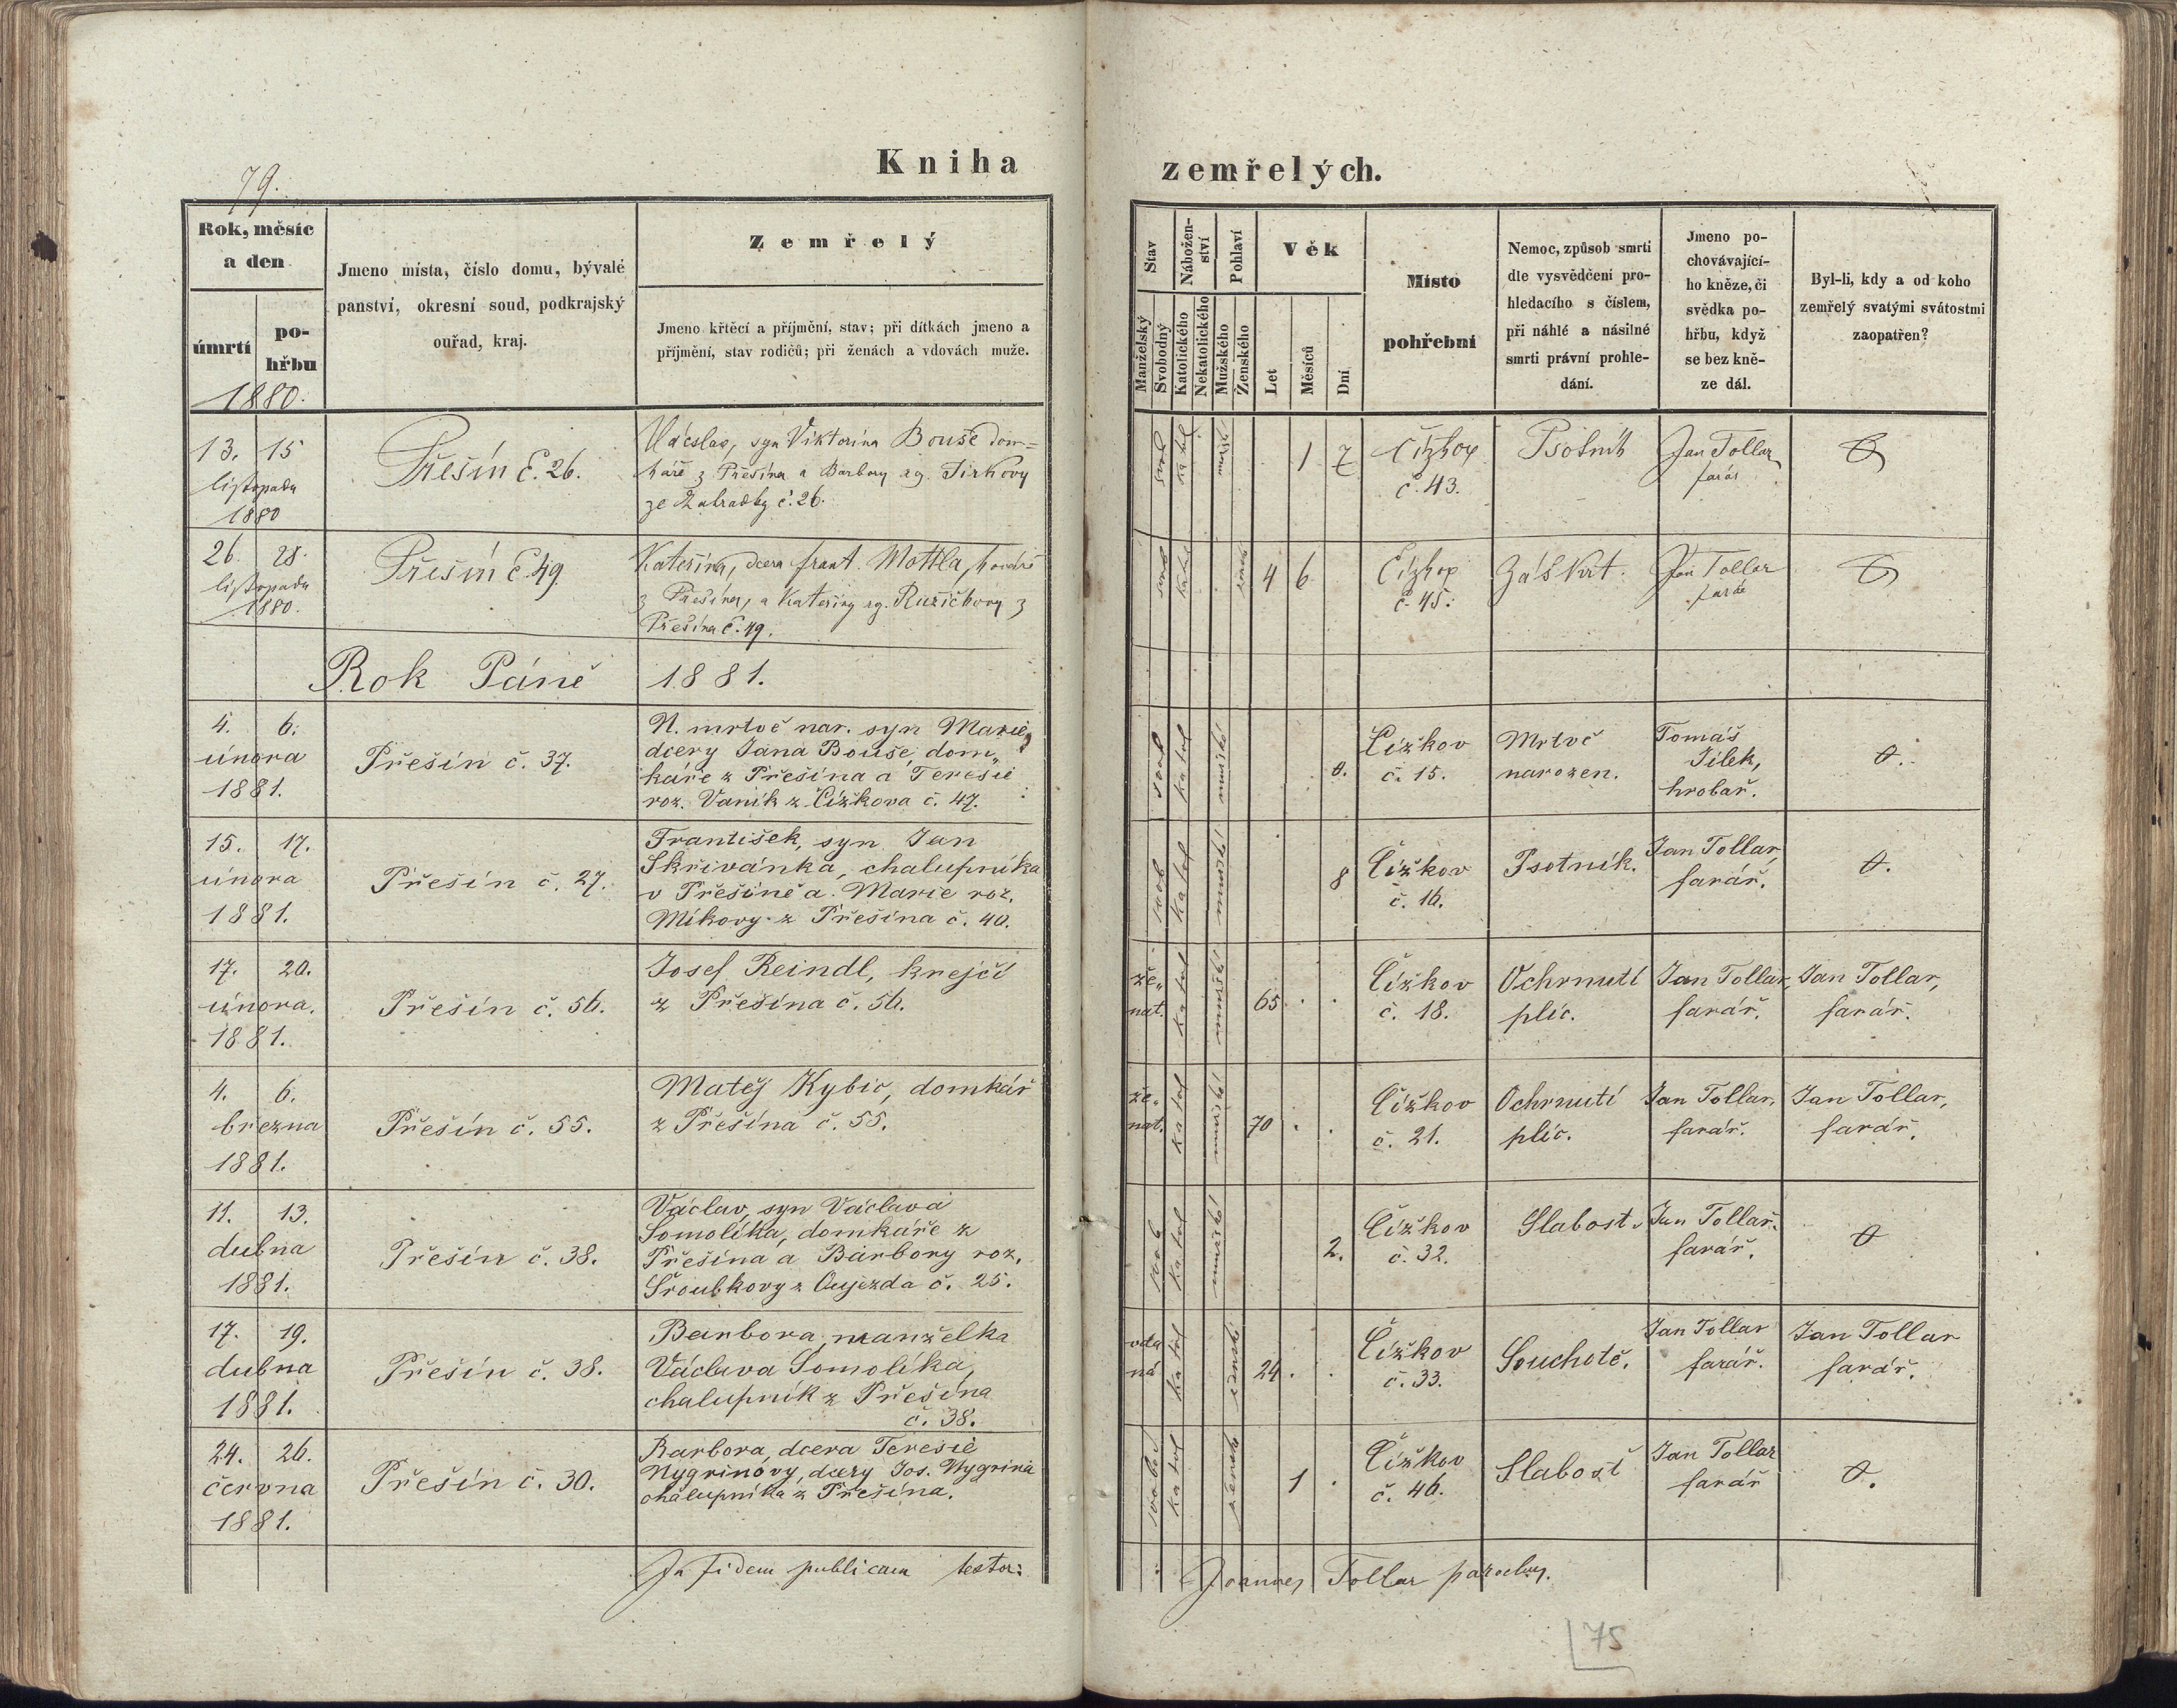 79.
Kniha zemřelých.
Rok, měsíc a den
úmrtí
po-
hřbu
1880.
Jmeno místa, číslo domu, bývalé
panství, okresní soud, podkrajský
ouřad, kraj.
Zemřelý
Jmeno křtěcí a příjmění, stav; při dítkách jmeno a
příjmění, stav rodičů; při ženách a vdovách muže.
Stav
Manželský
Svobodný
Nábožen-
ství
Katolického
Nekatolického
Pohlaví
Mužského
Ženského
Věk
Let
Měsíců
Dní
Místo
pohřební
Nemoc, způsob smrti
dle vysvědčení pro-
hledacího s číslem,
při náhlé a násilné
smrti právní prohle-
dání.
Jmeno po-
chovávající-
ho kněze, či
svědka po-
hřbu, když
se bez kně-
ze dál.
Byl-li, kdy a od koho
zemřelý svatými svátostmi
zaopatřen?
13. 15
listopadu
1880
Přešín č. 26.
Václav, syn Viktorina Bouše dom=
káře z Přešína a Barbory
ze Zahradky č. 26.
1 7
Čížkov
č. 43.
Psotník
Jan Tollar
farář
26. 28.
listopadu
1880.
Přešín č. 49
Kateřina, dcera frant. Mottla, kováře
z Přešína, a Kateřiny Růžičkovy z
Přešína č. 49.
4 6
Čížkov
č. 45.
Záškrt.
Jan Tollar
farář
Rok Páně 1881.
4. 6.
února
1881.
Přešín č. 37.
N. mrtvě nar. syn Marie,
dcery Jana Bouše, dom„
káře z Přešína a Teresie
roz. Vaník z Čížkova č. 47.
svob
katol
mužské
0.
Čížkov
č. 15.
Mrtvě
narozen.
Tomáš
Jílek,
hrobař.
0.
15. 17.
února
1881.
Přešín č. 27.
František, syn Jan
Skřivánka, chalupníka
v Přešíně a Marie roz.
Míkovy z Přešína č. 40.
svob
katol
mužské
8
Čížkov
č. 16.
Psotník.
Jan Tollar,
farář.
0.
17. 20.
února.
1881.
Přešín č. 56.
Josef Reindl, krejčí
z Přešína č. 56.
že„
nat.
katol
mužské
65 . .
Čížkov
č. 18.
Ochrnutí
plic.
Jan Tollar,
farář.
Jan Tollar,
farář.
4. 6.
března
1881.
Přešín č. 55.
Matěj Kybic, domkář
z Přešína č. 55.
že„
nat.
katol
mužské
70 . .
Čížkov
č. 21.
Ochrnutí
plic.
Jan Tollar,
farář.
Jan Tollar,
farář.
11. 13.
dubna
1881.
Přešín č. 38.
Václav, syn Václava
Somolíka, domkáře z
Přešína a Barbory roz.
Šroubkovy z Oujezda č. 25.
svob
katol
mužské
2.
Čížkov
č. 32.
Slabost.
Jan Tollar.
farář.
0
17. 19.
dubna
1881.
Přešín č. 38.
Barbora, manželka
Václava Somolíka,
chalupník z Přešína
č. 38.
vda
ná
katol
ženské
24 . .
Čížkov
č. 33.
Souchotě.
Jan Tollar
farář.
Jan Tollar
farář.
24. 26.
června
1881.
Přešín č. 30.
Barbora, dcera Teresie
Nygrinovy, dcery Jos. Nygrina
chalupníka z Přešína.
svobod
katol
ženské
1 .
Čížkov
č. 46.
Slabost
Jan Tollar
farář
0.
In fidem publicam testor:
Joannes Tollar parochus.
75